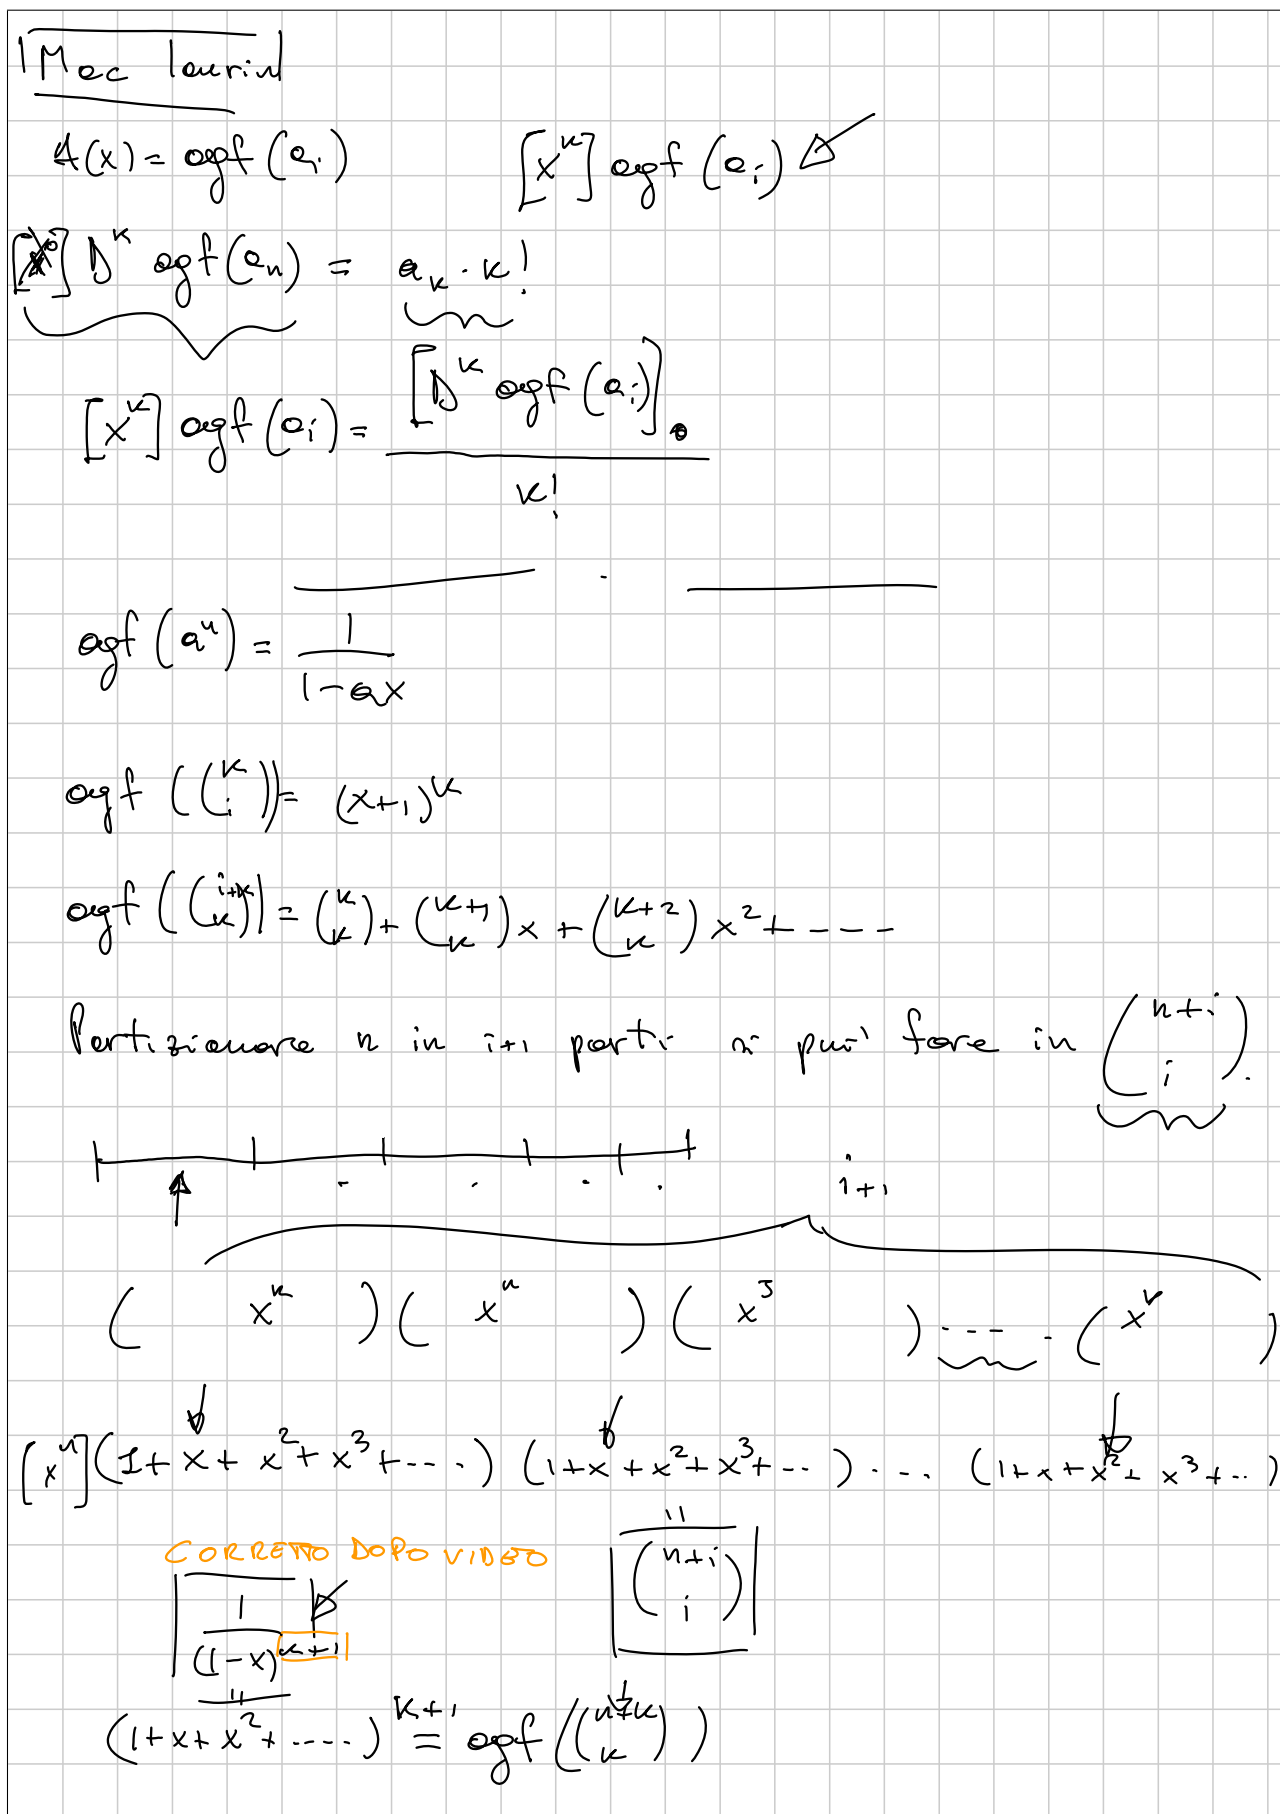 Mac laurin
A(x) = ogf (a_i)    [x^k] ogf (a_i)
[x^0] D^k ogf(a_n) = a_k · k!
[x^k] ogf (a_i) = [D^k ogf (a_i)]_0 / k!
ogf (a^n) = 1 / (1-ax)
ogf ((k i)) = (x+1)^k
ogf ((i+k k)) = (k k) + (k+1 k) x + (k+2 k) x^2 + ----
Partizionare n in i+1 parti si può fare in (n+i i).
i+1
( x^k )( x^n )( x^3 ) ---- · ( x^k )
[x^n] (1+x+x^2+x^3+....) (1+x+x^2+x^3+...) .... (1+x+x^2+x^3+...)
CORRETTO DOPO VIDEO
1 / (1-x)^k+1    = (n+i i)
=
(1+x+x^2+....)^k+1 = ogf ((n+k k))